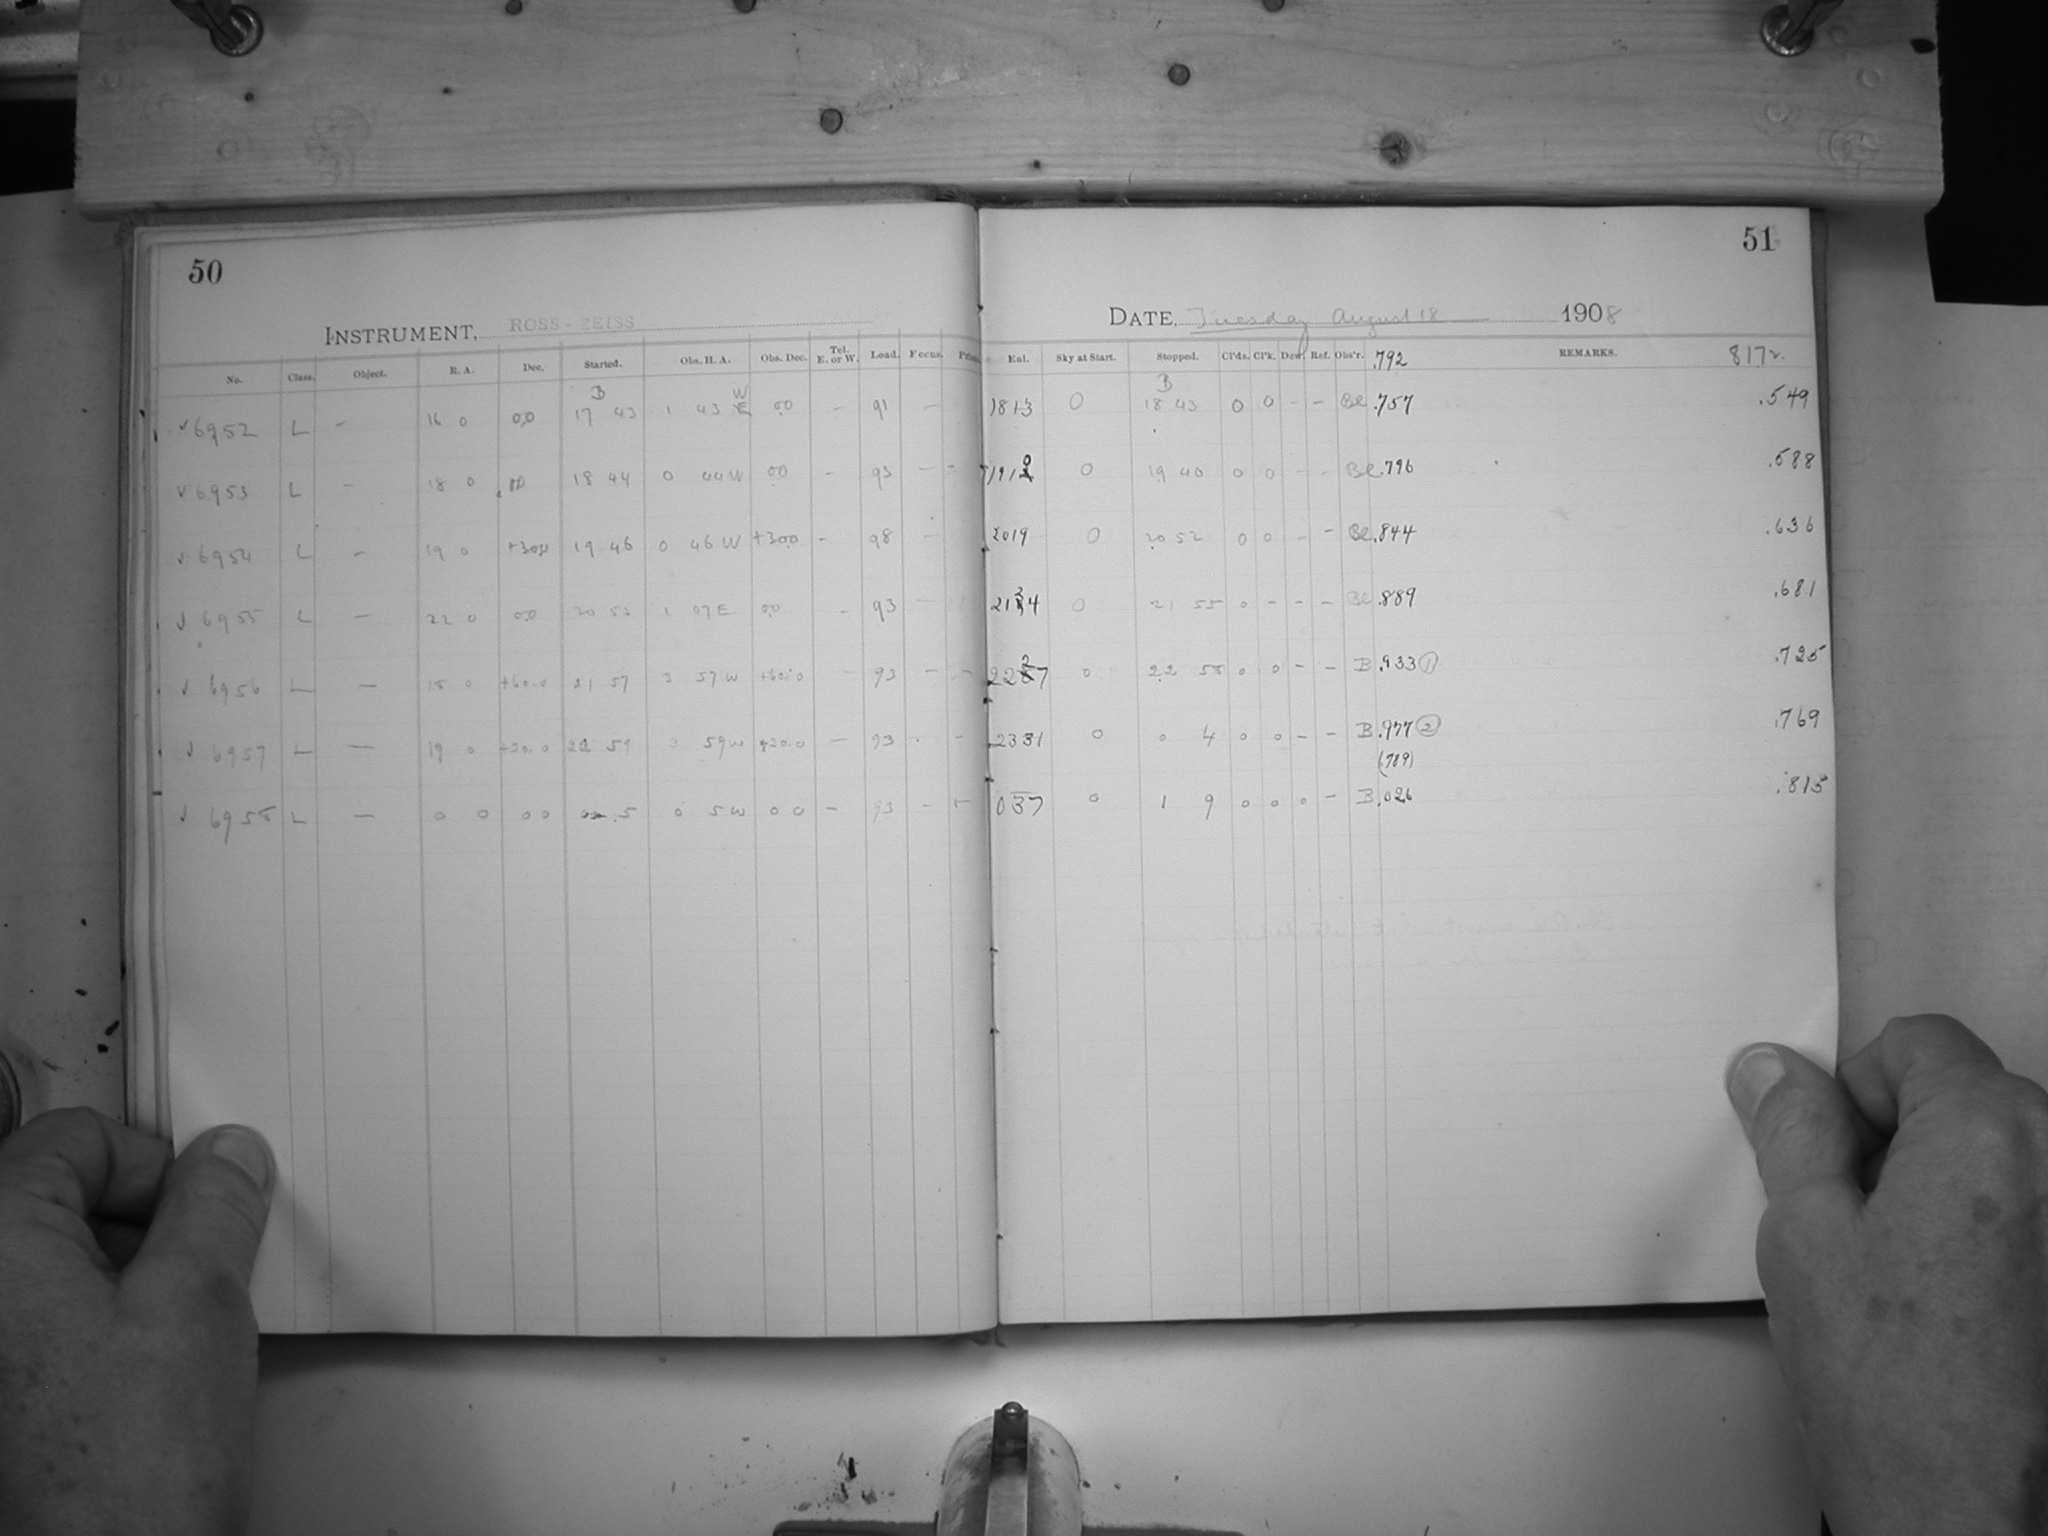 50
INSTRUMENT, ROSS-ZEISS
No. Class. Object. R. A. Dec. Started. Obs. H. A. Obs. Dec. Tel. E. or W. Load. Focus.
B W
6952 L - 16 0 00 17 43 1 43 E 00 - 91 -
6953 L - 18 0 00 18 44 0 44 W 00 - 93 - -
6954 L - 19 0 +30.0 19 46 0 46 W +30.0 - 98 -
6955 L - 22 0 00 20 53 1 07 E 00 - 93 -
6956 L - 18 0 +60.0 21 57 3 57 W +60.0 - 93 - -
6957 L - 19 0 +30.0 22 59 3 59 W +30.0 - 93 - -
6958 L - 0 0 0 0 5 0 5 W 0 0 - 93 - -
51
DATE, Tuesday August 18 1908
Eal. Sky at Start. Stopped. Cl'ds. Cl'k. Dew. Ref. Obs'r. .792 REMARKS. 817
B
1813 0 18 43 0 0 - - Bl .757 .549
191 0 0 19 40 0 0 - - Bl .796 .588
2019 0 20 52 0 0 - - Bl .844 .636
2134 0 21 55 0 - - - Bl .889 .681
2227 0 22 58 0 0 - - B .933 (1) .725
2331 0 0 4 0 0 - - B .977 (2) .769
(.789)
037 0 1 9 0 0 0 - B .026 .813